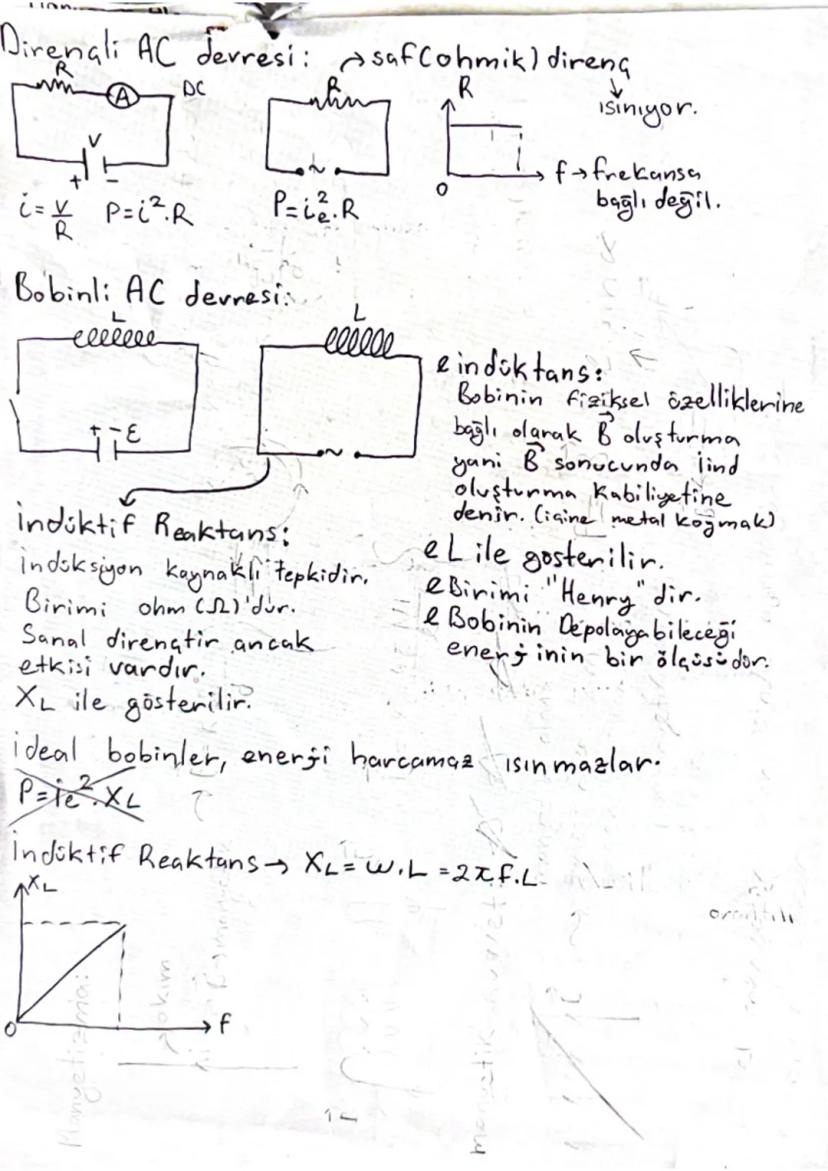 Dirençli AC devresi: → saf(ohmik) direnç
ısınıyor.
R
A
DC
V
+ -
i = V/R P=i².R
R
~
P=ie².R
R
0
f → frekansa
bağlı değil.
Bobinli AC devresi:
L
+ - ε
L
~
indüktans:
Bobinin fiziksel özelliklerine
bağlı olarak B⃗ oluşturma
yani B⃗ sonucunda iind
oluşturma kabiliyetine
denir. (içine metal koğmak)
L ile gösterilir.
Birimi "Henry" dir.
Bobinin Depolayabileceği
enerjinin bir ölçüsüdür.
indüktif Reaktans:
indüksiyon kaynaklı tepkidir.
Birimi ohm (Ω)'dur.
Sanal dirençtir ancak
etkisi vardır.
XL ile gösterilir.
ideal bobinler, enerji harcamaz ısınmazlar.
P=ie².XL
İndüktif Reaktans → XL = w.L = 2πf.L
XL
0
f
orantılı
akım
Manyetizma: